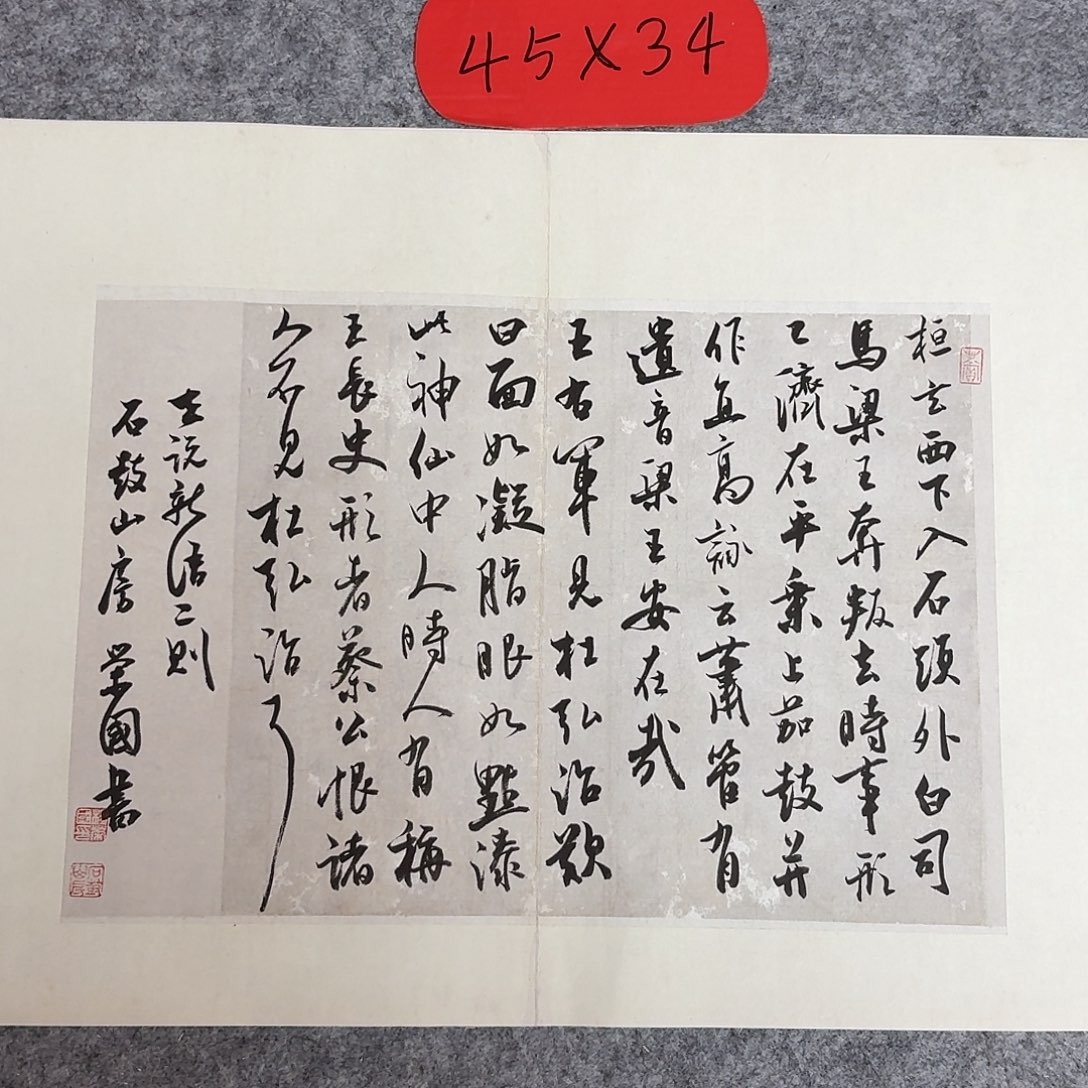 45X34
桓玄西下入石頭外白司
馬梁王奔叛去時事形
已濟在平乘上笳鼓并
作直高詠云蕭管有
遺音梁王安在哉
王右軍見杜弘治歎
曰面如凝脂眼如點漆
此神仙中人時人有稱
王長史形者蔡公恨諸
人不見杜弘治耳
世說新語二則
石鼓山房 榮國書